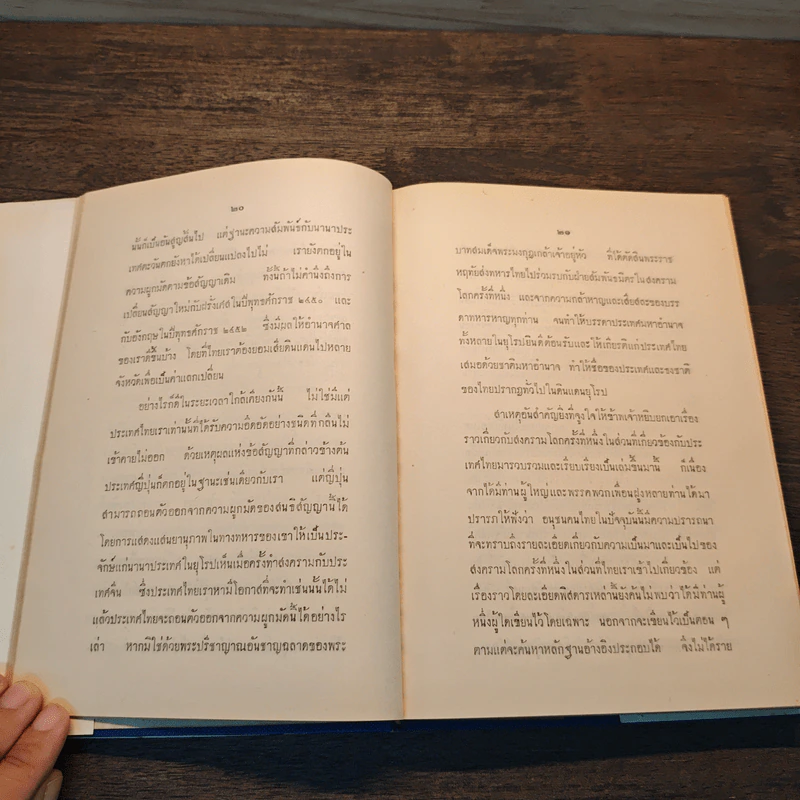 ๒๐
นั้นก็เป็นอันสูญสิ้นไป แต่ฐานะความสัมพันธ์กับนานาประ
เทศตะวันตกยังหาได้เปลี่ยนแปลงไปไม่ เรายังตกอยู่ใน
ความผูกมัดตามข้อสัญญาเดิม ทั้งนี้ถ้าไม่คำนึงถึงการ
เปลี่ยนสัญญาใหม่กับฝรั่งเศสในปีพุทธศักราช ๒๔๕๐ และ
กับอังกฤษในปีพุทธศักราช ๒๔๕๒ ซึ่งมีผลให้อำนาจศาล
ของเราดีขึ้นบ้าง โดยที่ไทยเราต้องยอมเสียดินแดนไปหลาย
จังหวัดเพื่อเป็นค่าแลกเปลี่ยน
อย่างไรก็ดีในระยะเวลาใกล้เคียงกันนี้ ไม่ใช่มีแต่
ประเทศไทยเราเท่านั้นที่ได้รับความอึดอัดอย่างชนิดที่กลืนไม่
เข้าคายไม่ออก ด้วยเหตุผลแห่งข้อสัญญาที่กล่าวข้างต้น
ประเทศญี่ปุ่นก็ตกอยู่ในฐานะเช่นเดียวกับเรา แต่ญี่ปุ่น
สามารถถอนตัวออกจากความผูกมัดของสนธิสัญญานี้ได้
โดยการแสดงแสนยานุภาพในทางทหารของเขาให้เป็นประ-
จักษ์แก่นานาประเทศในยุโรปเห็นเมื่อครั้งทำสงครามกับประ
เทศจีน ซึ่งประเทศไทยเราหามีโอกาสที่จะทำเช่นนั้นได้ไม่
แล้วประเทศไทยจะถอนตัวออกจากความผูกมัดนี้ได้อย่างไร
เล่า หากมิใช่ด้วยพระปรีชาญาณอันชาญฉลาดของพระ
๒๑
บาทสมเด็จพระมงกุฎเกล้าเจ้าอยู่หัว ที่ได้ตัดสินพระราช
หฤทัยส่งทหารไทยไปร่วมรบกับฝ่ายสัมพันธมิตรในสงคราม
โลกครั้งที่หนึ่ง และจากความกล้าหาญและเสียสละของบรร
ดาทหารหาญทุกท่าน จนทำให้บรรดาประเทศมหาอำนาจ
ทั้งหลายในยุโรปยินดีต้อนรับและให้เกียรติแก่ประเทศไทย
เสมอด้วยชาติมหาอำนาจ ทำให้ชื่อของประเทศและธงชาติ
ของไทยปรากฏทั่วไปในดินแดนยุโรป
สาเหตุอันสำคัญยิ่งที่จูงใจให้ข้าพเจ้าหยิบยกเอาเรื่อง
ราวเกี่ยวกับสงครามโลกครั้งที่หนึ่งในส่วนที่เกี่ยวข้องกับประ
เทศไทยมารวบรวมและเรียบเรียงเป็นเล่มขึ้นมานี้ ก็เนื่อง
จากได้มีท่านผู้ใหญ่และพรรคพวกเพื่อนฝูงหลายท่านได้มา
ปรารภให้ฟังว่า อนุชนคนไทยในปัจจุบันนี้มีความปรารถนา
ที่จะทราบถึงรายละเอียดเกี่ยวกับความเป็นมาและเป็นไปของ
สงครามโลกครั้งที่หนึ่งในส่วนที่ไทยเราเข้าไปเกี่ยวข้อง แต่
เรื่องราวโดยละเอียดพิสดารเหล่านี้ยังค้นไม่พบว่าได้มีท่านผู้
หนึ่งผู้ใดเขียนไว้โดยเฉพาะ นอกจากจะเขียนไว้เป็นตอน ๆ
ตามแต่จะค้นหาหลักฐานอ้างอิงประกอบได้ จึงไม่ได้ราย